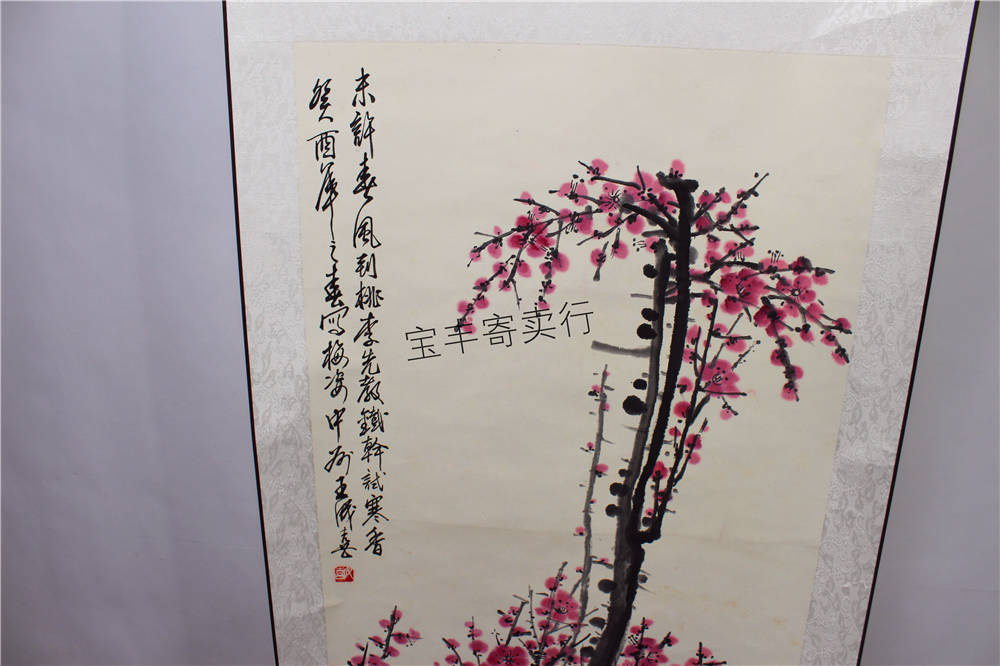 未許春風到桃李先教鐵幹試寒香
癸酉年之春寫梅姿中州王成喜
宝丰寄卖行